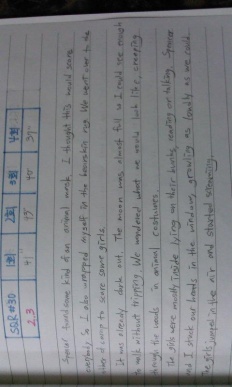 SQR #30 1회 2회 3회 4회
2, 3 41" 45" 40" 39"
Special hand some kind of an animal mask. I thought this would scare
everybody. So I also wrapped myself in the bearskin rug. We went over to the
other camp to scare some girls.
It was already dark out. The moon was almost full so I could see enough
walk without tripping. We wondered what we would look like, creeping
through the woods in animal costumes.
The girls were mostly inside lying on their bunks, reading or talking. Spencer
and I stuck our heads in the windows, growling as loudly as we could.
The girls jumped in the air and started screaming.